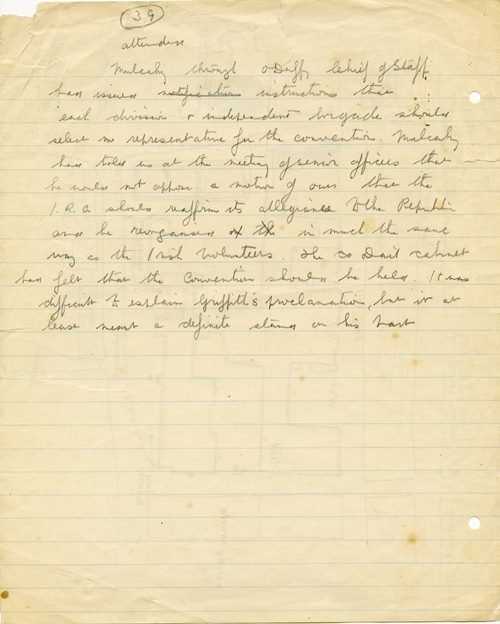 39
attenders
Mulcahy through O Duffy Chief of Staff
had issued notification instructions that
each division & independent brigade should
select representatives for the convention. Mulcahy
had told us at the meeting of senior officers that
he would not oppose a motion of ours that the
I.R.A should reaffirm its allegiance to the Republic
and be reorganised in much the same
way as the Irish Volunteers. The Dail cabinet
had felt that the Convention should be held. It was
difficult to explain Griffith's proclamation, but it at
least meant a definite stand on his part